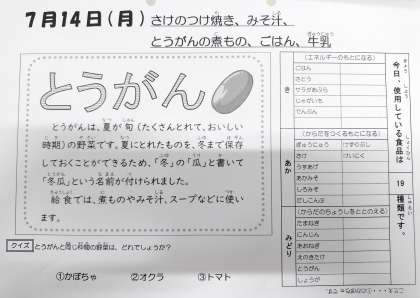 7月14日(月) さけのつけ焼き、みそ汁、
とうがんの煮もの、ごはん、牛乳
とうがん
とうがんは、夏が旬(たくさんとれて、おいしい
時期)の野菜です。夏にとれたものを、冬まで保存
しておくことができるため、「冬」の「瓜」と書いて
「冬瓜」という名前が付けられました。
給食では、煮ものやみそ汁、スープなどに使い
ます。
クイズ とうがんと同じ種類の野菜は、どれでしょうか?
①かぼちゃ ②オクラ ③トマト
今日、使用している食品は 19 種類です。
き
(エネルギーのもとになる)
ごはん
さとう
サラダあぶら
じゃがいも
でんぷん
あか
(からだをつくるもとになる)
ぎゅうにゅう けずりぶし
さけ けいにく
うすあげ
あかみそ
しろみそ
だしこんぶ
みどり
(からだのちょうしをととのえる)
たまねぎ
にんじん
あおねぎ
えのきたけ
とうがん
しょうが